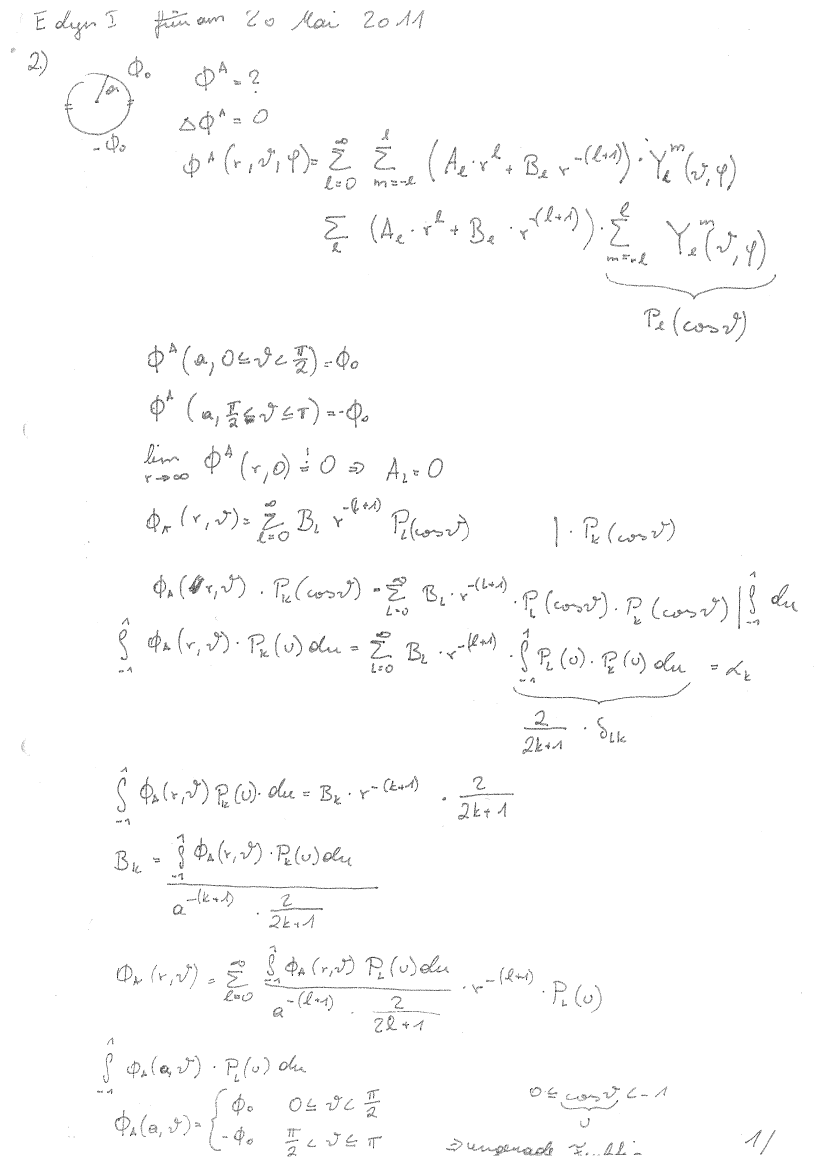 E dyn I für am 20 Mai 2011
2)
Φ₀
a
-Φ₀
Φ^A = ?
ΔΦ^A = 0
Φ^A (r, ϑ, φ) = ∑_{l=0}^{∞} ∑_{m=-l}^{l} (A_l · r^l + B_l r^{-(l+1)}) · Y_l^m (ϑ, φ)
∑_l (A_l · r^l + B_l · r^{-(l+1)}) · ∑_{m=-l}^{l} Y_l^m (ϑ, φ)
P_l (cos ϑ)
Φ^A (a, 0 ≤ ϑ < π/2) = Φ₀
Φ^A (a, π/2 ≤ ϑ ≤ π) = -Φ₀
lim_{r→∞} Φ^A (r, 0) =! 0 ⇒ A_L = 0
Φ_A (r, ϑ) = ∑_{l=0}^{∞} B_L r^{-(l+1)} P_L (cos ϑ) | · P_k (cos ϑ)
Φ_A (r, ϑ) · P_k (cos ϑ) = ∑_{L=0}^{∞} B_L · r^{-(L+1)} · P_L (cos ϑ) · P_k (cos ϑ) | ∫_{-1}^{1} du
∫_{-1}^{1} Φ_A (r, ϑ) · P_k (u) du = ∑_{L=0}^{∞} B_L · r^{-(l+1)} · ∫_{-1}^{1} P_L (u) · P_k (u) du = α_k
2/(2k+1) · δ_{Lk}
∫_{-1}^{1} Φ_A (r, ϑ) P_k (u) · du = B_k · r^{-(k+1)} · 2/(2k+1)
B_k = ∫_{-1}^{1} Φ_A (r, ϑ) · P_k (u) du / (a^{-(k+1)} · 2/(2k+1))
Φ_A (r, ϑ) = ∑_{l=0}^{∞} ∫_{-1}^{1} Φ_A (r, ϑ) P_L (u) du / (a^{-(l+1)} · 2/(2l+1)) · r^{-(l+1)} · P_L (u)
∫_{-1}^{1} Φ_A (a, ϑ) · P_L (u) du
Φ_A (a, ϑ) = { Φ₀ 0 ≤ ϑ < π/2
-Φ₀ π/2 < ϑ ≤ π
0 ≤ cos ϑ < -1
u
⇒ ungerade
1/